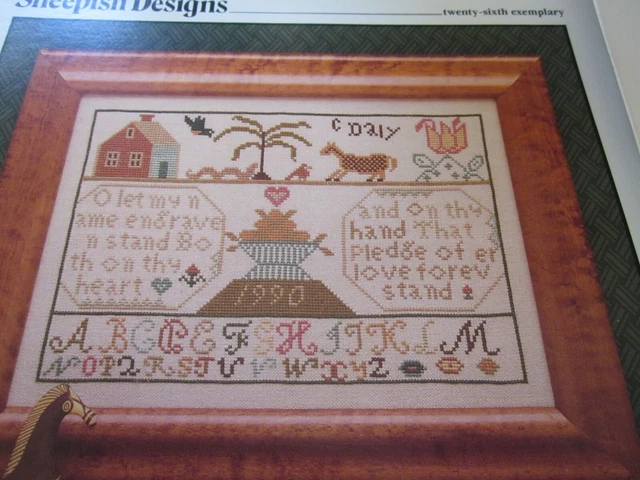 Sheepish Designs
twenty-sixth exemplary
C Daly
O let my n
ame engrave
n stand Bo
th on thy
heart
and on thy
hand That
Pledge of er
love forev
stand
1990
A B C D E F G H I J K L M
N O P Q R S T U V W X Y Z